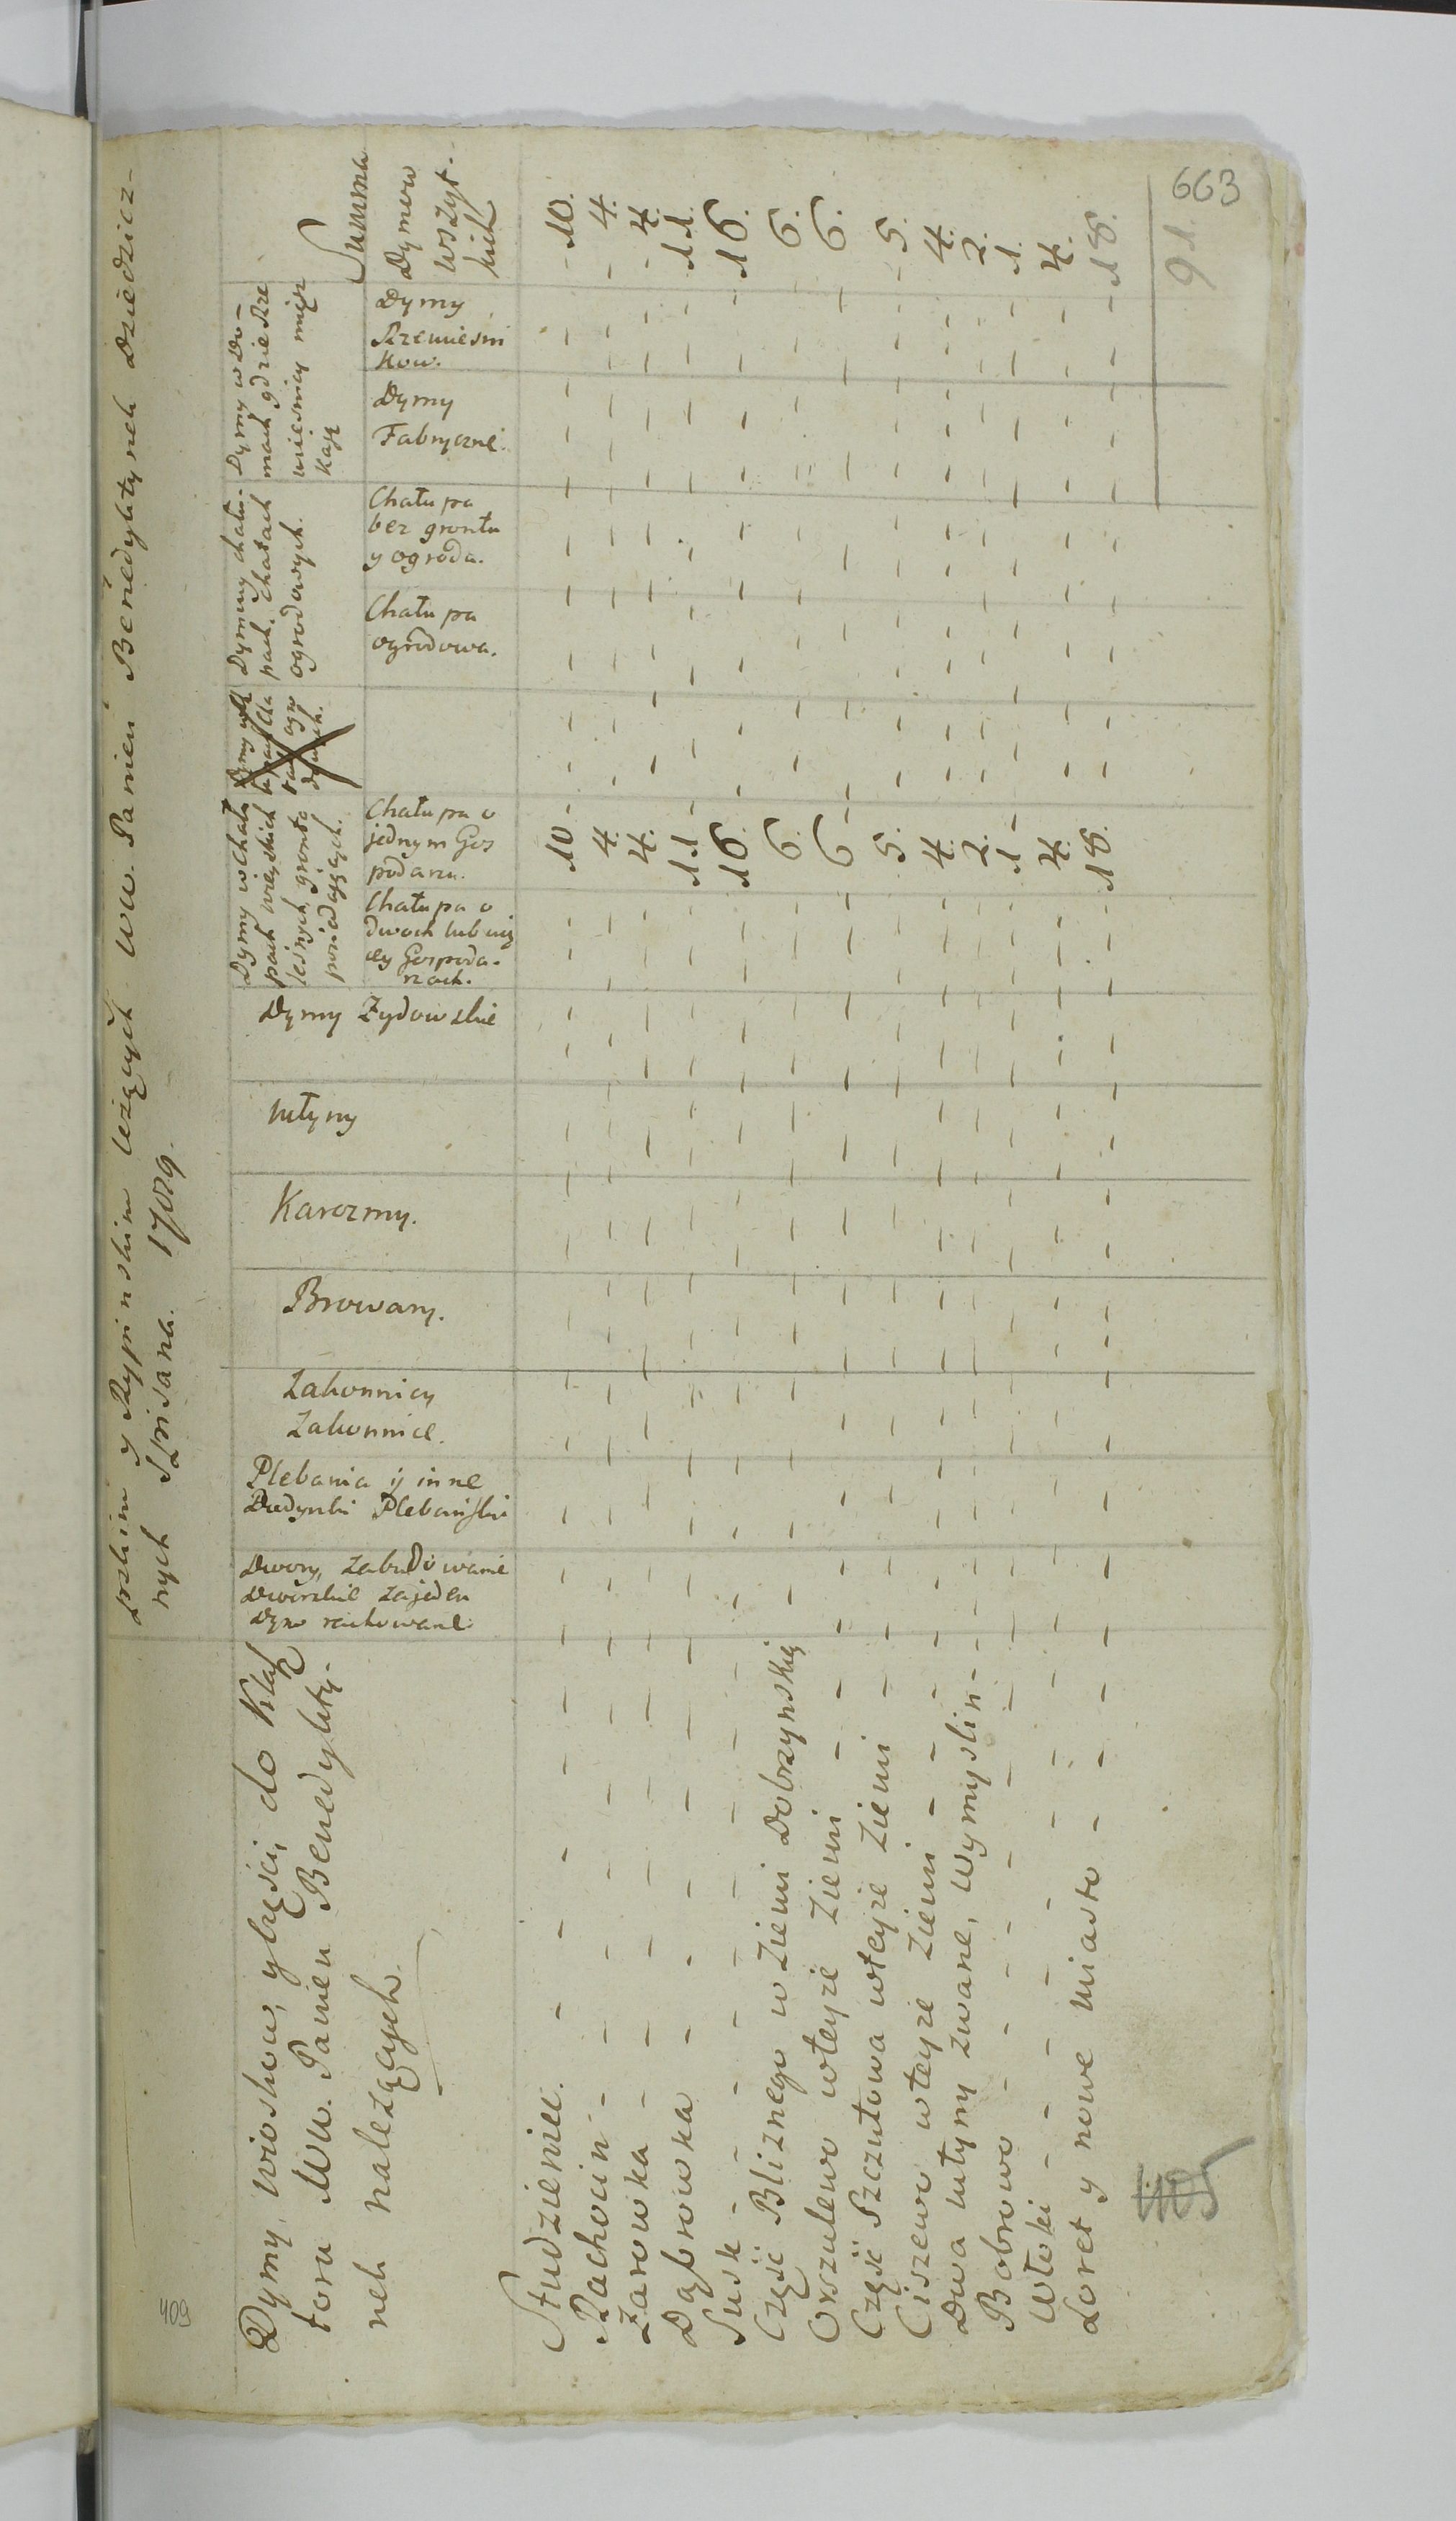 663
pskim y Rypinskim leżących WW. Panien Benedyktynek Dziedzicz-
nych Spisana. 1789.
Dymy, wiosków, y części, do Klasz
toru WW. Panien Benedykty-
nek należących.
Dwory, zabudowanie
Dworskie za jeden
Dym rachowane
Plebania y inne
Budynki Plebańskie
Zakonnicy
Zakonnice.
Browary.
Karczmy.
Młyny
Dymy Żydowskie
Dymy w Chału
pach wieyskich
leśnych, gronta
posiadających.
Chałupa o
dwoch lub wię
cy Gospoda-
rzach.
Chałupa o
jednym Gos
podarzu.
Dymy w chału-
pach, Chatach
ogrodowych.
Chałupa
ogrodowa.
Chałupa
bez grontu
y ogroda.
Dymy w Do-
mach gdzie Rze
mieśnicy miesz
kają
Dymy
Fabryczne.
Dymy
Rzemieśni
kow.
Summa
Dymow
wszyt-
kich
Studzieniec. - - - - - 10. - 10.
Rachocin - - - - - 4. - 4.
Żarowka - - - - - 4. - 4.
Dąbrowka - - - - - 11. - 11.
Susk - - - - - 16. - 16.
Część Bliznego w Ziemi Dobrzynskiey 6. 6.
Orszulewo wteyże Ziemi - - 6. 6.
Część Szczutowa wteyże Ziemi - 5. - 5.
Ciszewo wteyże Ziemi - - - 4. 4.
Dwa młyny zwane, Wymyslin - 2. 2.
Bobrowo - - - - - 1. 1.
Wtoki - - - - - 4. 4.
Loret y nowe miasto - - - 18. - 18.
91.
409
405